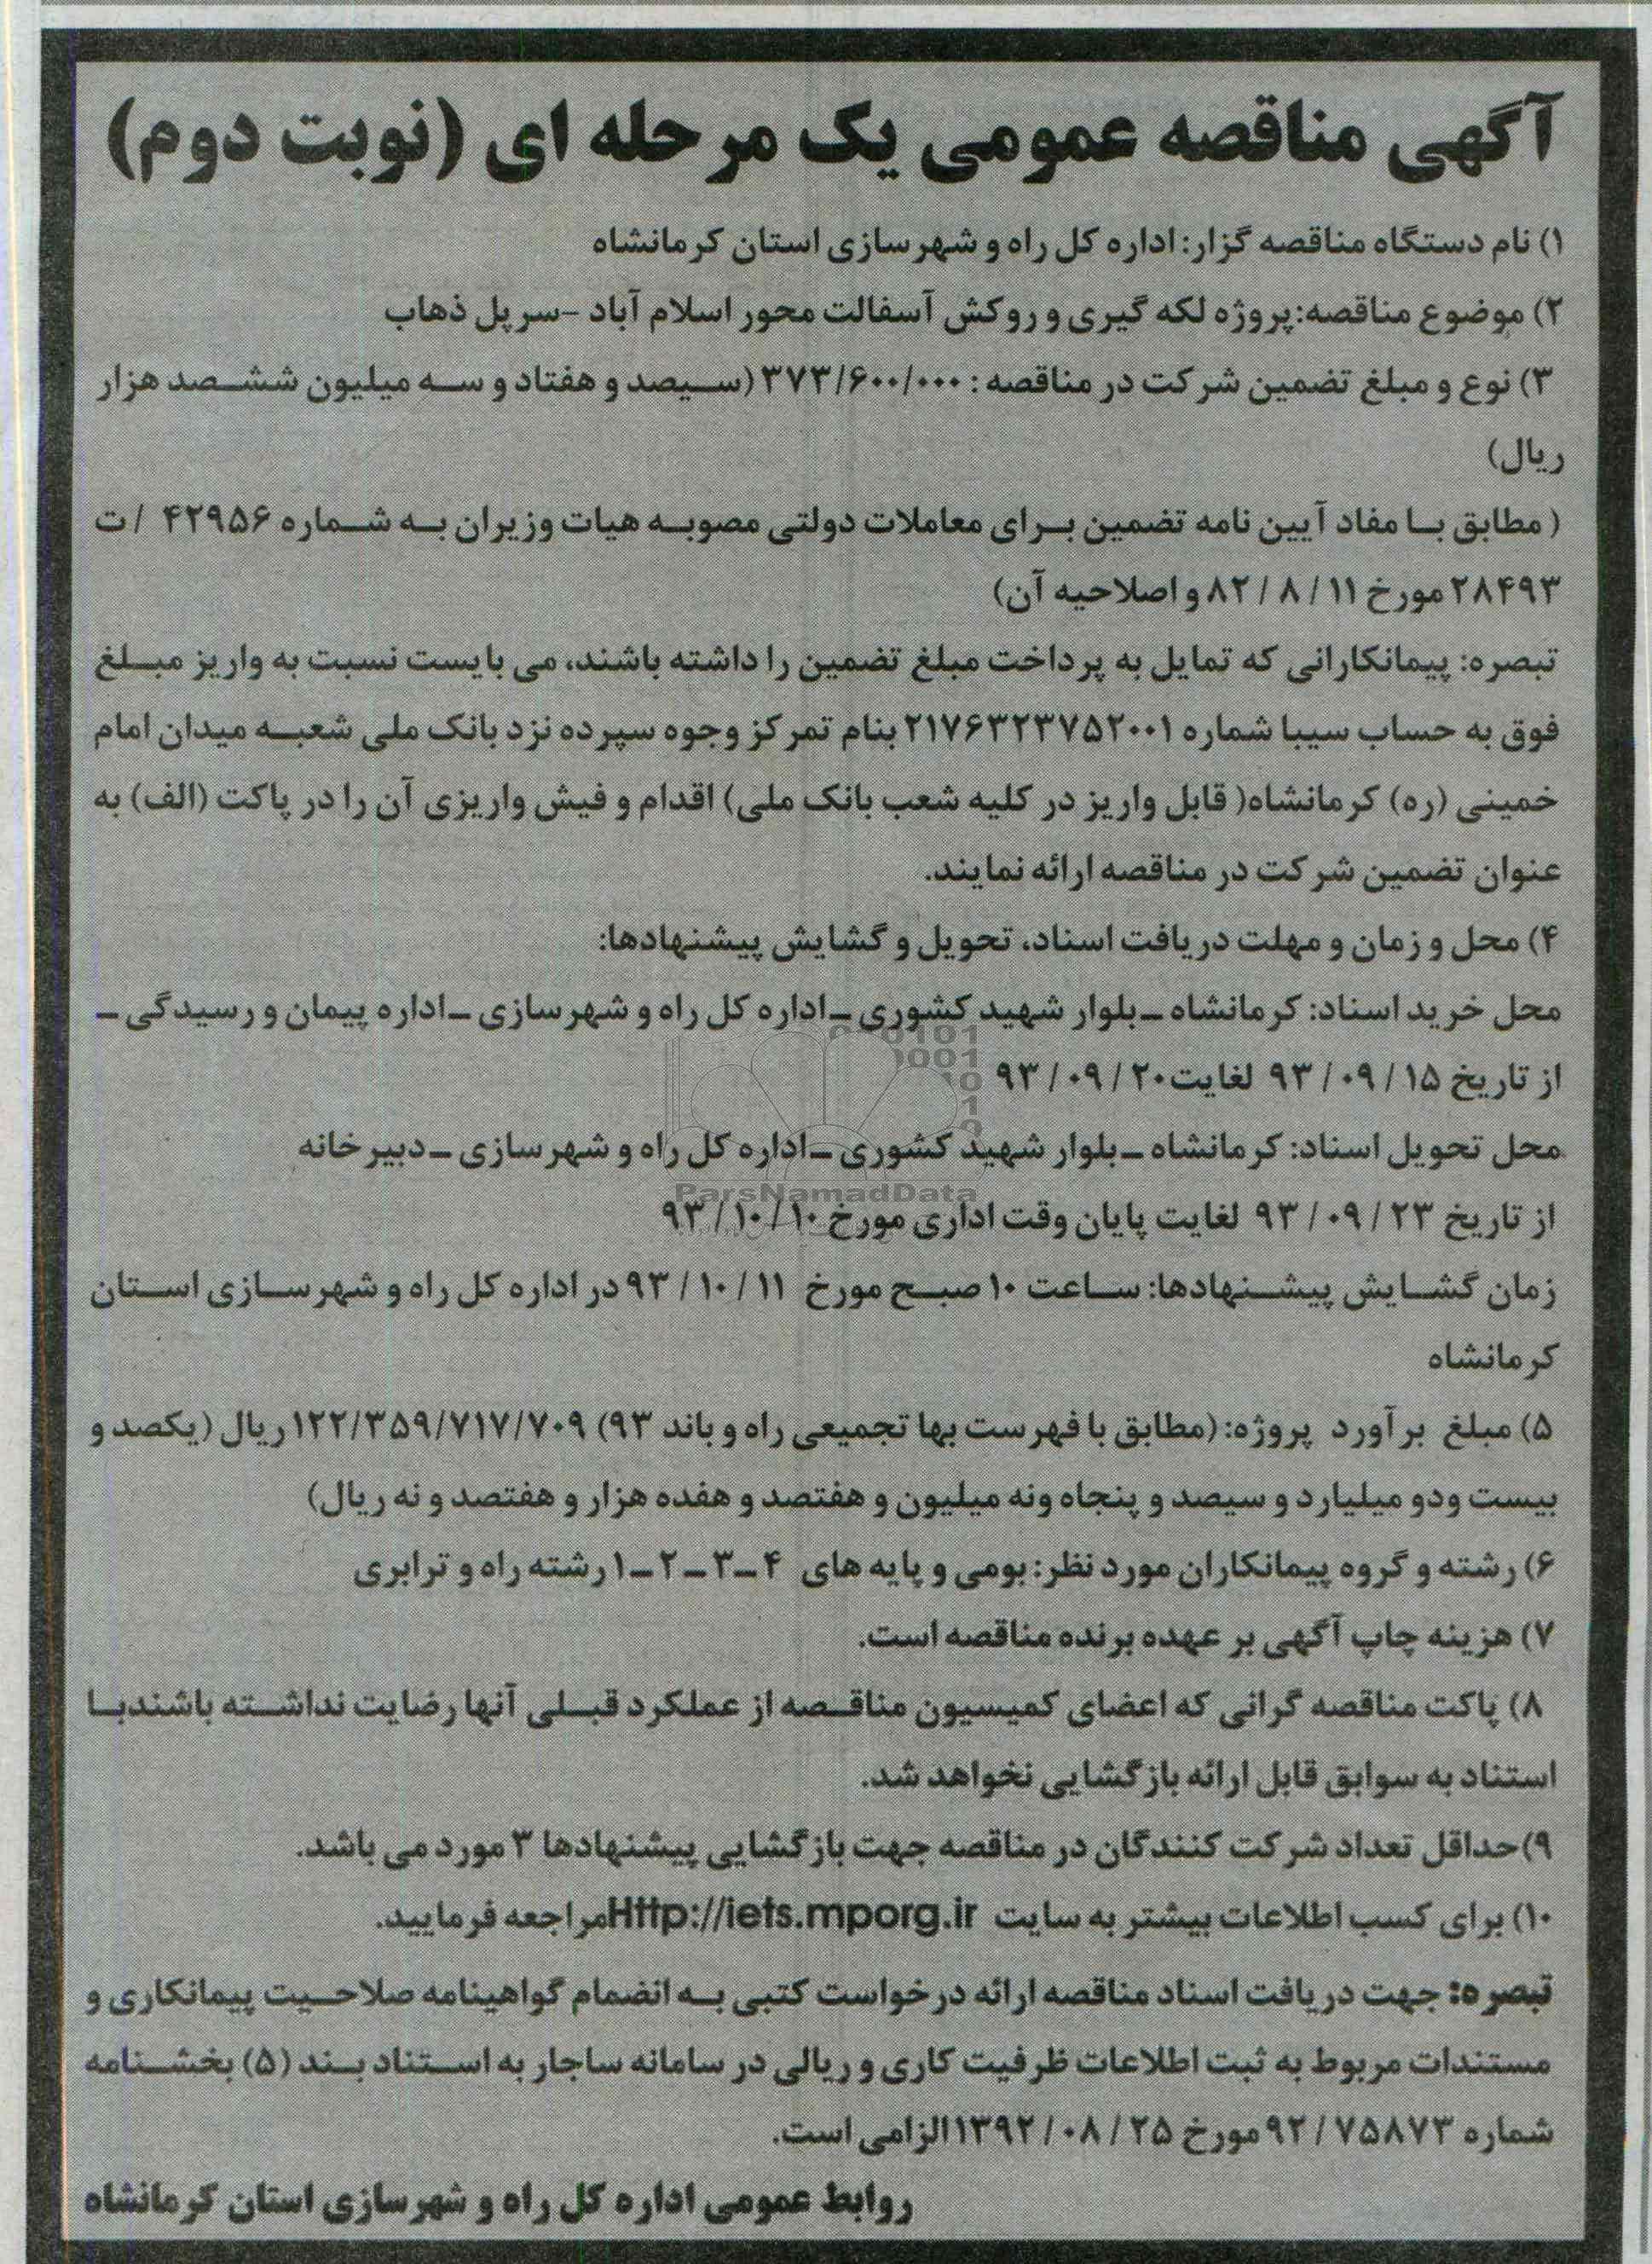 آگهی مناقصه عمومی یک مرحله ای (نوبت دوم)
۱) نام دستگاه مناقصه گزار: اداره کل راه و شهرسازی استان کرمانشاه
۲) موضوع مناقصه: پروژه لکه گیری و روکش آسفالت محور اسلام آباد -سرپل ذهاب
۳) نوع و مبلغ تضمین شرکت در مناقصه : ۳۷۳/۶۰۰/۰۰۰ (سیصد و هفتاد و سه میلیون ششصد هزار
ریال)
( مطابق با مفاد آیین نامه تضمین برای معاملات دولتی مصوبه هیات وزیران به شماره ۴۲۹۵۶ /ت
۲۸۴۹۳ مورخ ۱۱ / ۸ / ۸۲ و اصلاحیه آن)
تبصره: پیمانکارانی که تمایل به پرداخت مبلغ تضمین را داشته باشند، می بایست نسبت به واریز مبلغ
فوق به حساب سیبا شماره ۲۱۷۶۳۲۳۷۵۲۰۰۱ بنام تمرکز وجوه سپرده نزد بانک ملی شعبه میدان امام
خمینی (ره) کرمانشاه( قابل واریز در کلیه شعب بانک ملی) اقدام و فیش واریزی آن را در پاکت (الف) به
عنوان تضمین شرکت در مناقصه ارائه نمایند.
۴) محل و زمان و مهلت دریافت اسناد، تحویل و گشایش پیشنهادها:
محل خرید اسناد: کرمانشاه –بلوار شهید کشوری –اداره کل راه و شهرسازی –اداره پیمان و رسیدگی –
از تاریخ ۱۵ / ۰۹ / ۹۳ لغایت ۲۰ / ۰۹ / ۹۳
محل تحویل اسناد: کرمانشاه –بلوار شهید کشوری –اداره کل راه و شهرسازی –دبیرخانه
ParsNamadData
از تاریخ ۲۳ / ۰۹ / ۹۳ لغایت پایان وقت اداری مورخ ۱۰ / ۱۰ / ۹۳
زمان گشایش پیشنهادها: ساعت ۱۰ صبح مورخ ۱۱ / ۱۰ / ۹۳ در اداره کل راه و شهرسازی استان
کرمانشاه
۵) مبلغ برآورد پروژه: (مطابق با فهرست بها تجمیعی راه و باند ۹۳) ۱۲۲/۳۵۹/۷۱۷/۷۰۹ ریال (یکصد و
بیست ودو میلیارد و سیصد و پنجاه ونه میلیون و هفتصد و هفده هزار و هفتصد و نه ریال)
۶) رشته و گروه پیمانکاران مورد نظر: بومی و پایه های ۴–۳–۲–۱ رشته راه و ترابری
۷) هزینه چاپ آگهی بر عهده برنده مناقصه است.
۸) پاکت مناقصه گرانی که اعضای کمیسیون مناقصه از عملکرد قبلی آنها رضایت نداشته باشندبا
استناد به سوابق قابل ارائه بازگشایی نخواهد شد.
۹)حداقل تعداد شرکت کنندگان در مناقصه جهت بازگشایی پیشنهادها ۳ مورد می باشد.
۱۰) برای کسب اطلاعات بیشتر به سایت Http://iets.mporg.ir مراجعه فرمایید.
تبصره: جهت دریافت اسناد مناقصه ارائه درخواست کتبی به انضمام گواهینامه صلاحیت پیمانکاری و
مستندات مربوط به ثبت اطلاعات ظرفیت کاری و ریالی در سامانه ساجار به استناد بند (۵) بخشنامه
شماره ۷۵۸۷۳ / ۹۲ مورخ ۲۵ / ۰۸ / ۱۳۹۲ الزامی است.
روابط عمومی اداره کل راه و شهرسازی استان کرمانشاه